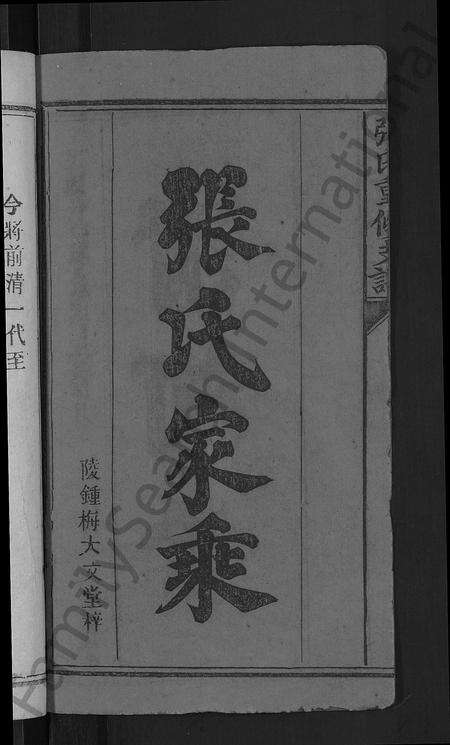 張氏重修支譜
張氏家乘
陵鍾梅大文堂梓
今將前清一代至
FamilySearch International